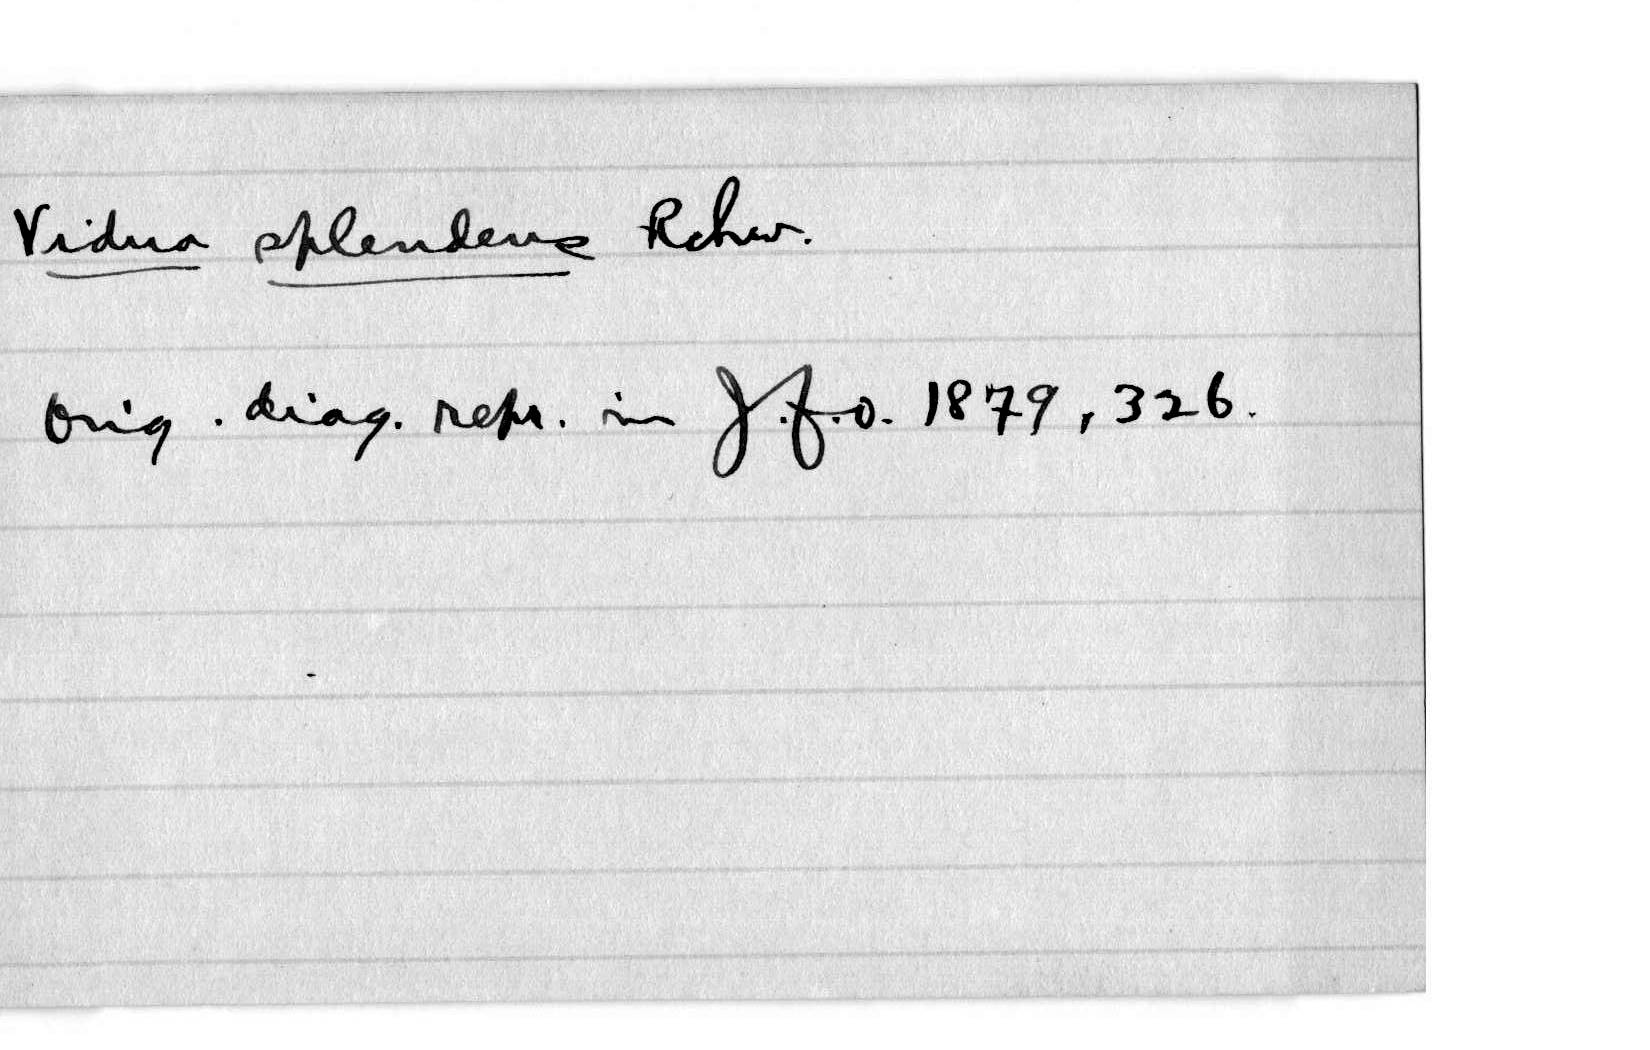 Vidua splendens Rchw.
Orig. diag. repr. in J.f.O. 1879, 326.